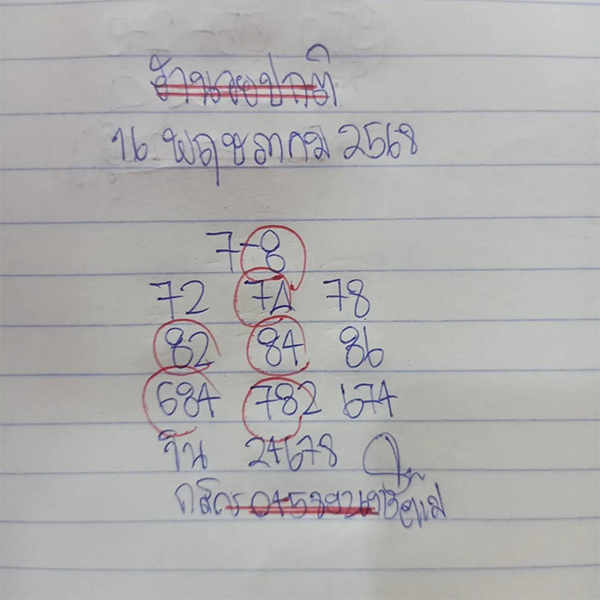 16 พฤษภาคม 2568
7-8
72 74 78
82 84 86
684 782 674
วิน 24678